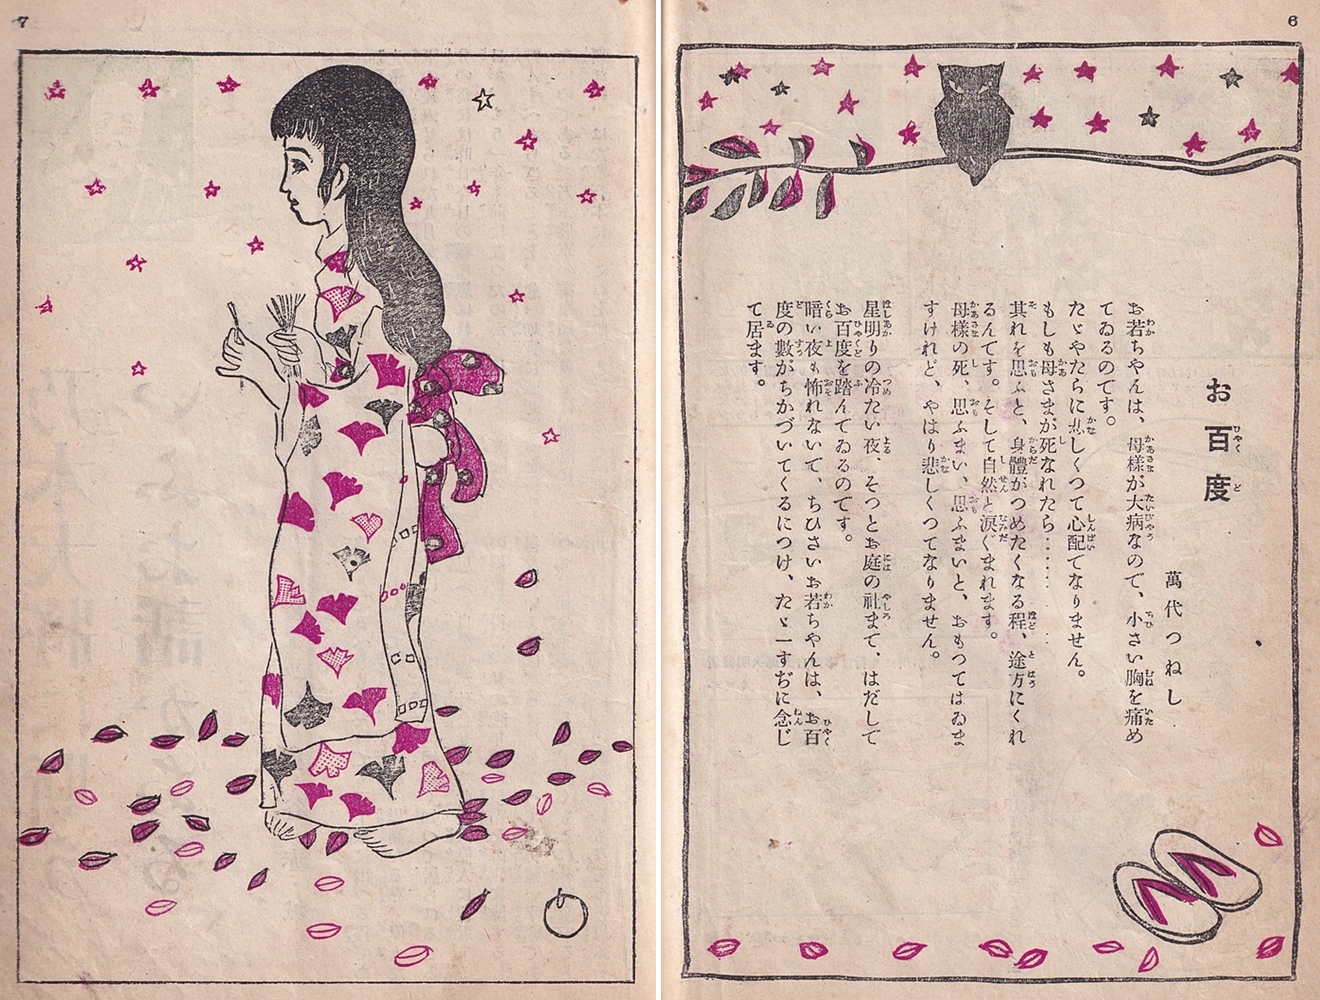 6
お百度
萬代つねし
お若ちやんは、母様が大病なので、小さい胸を痛め
てゐるのです。
たゞやたらに悲しくつて心配でなりません。
もしも母さまが死なれたら………
其れを思ふと、身體がつめたくなる程、途方にくれ
るんです。そして自然と涙ぐまれます。
母様の死、思ふまい、思ふまいと、おもつてはゐま
すけれど、やはり悲しくつてなりません。
星明りの冷たい夜、そつとお庭の社まで、はだしで
お百度を踏んでゐるのです。
暗い夜も怖れないで、ちひさいお若ちやんは、お百
度の數がちかづいてくるにつけ、たゞ一すぢに念じ
て居ます。
7